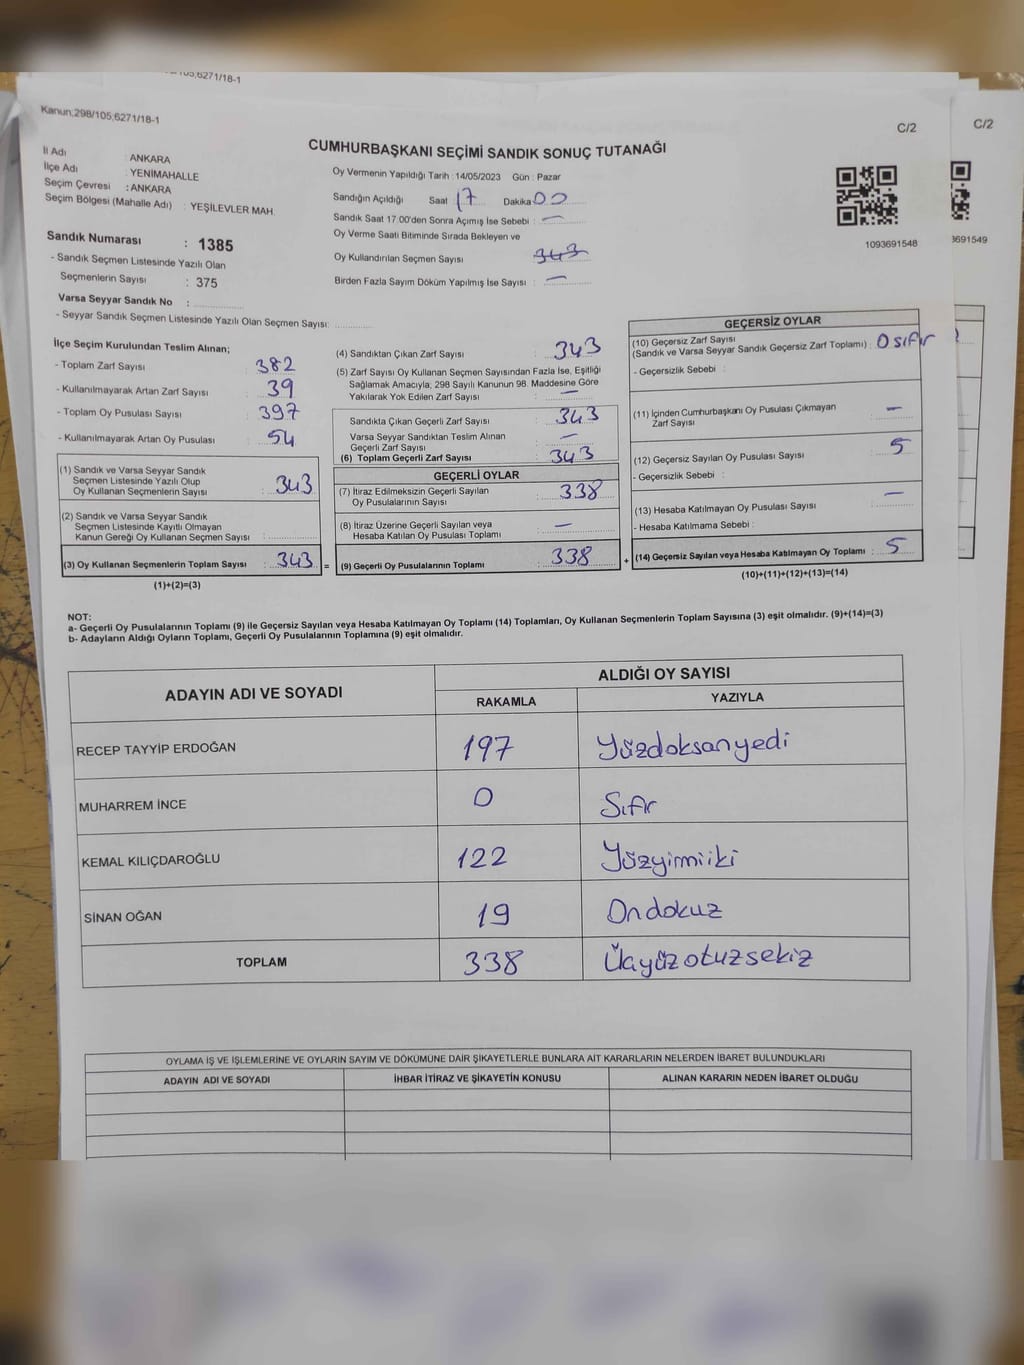 105;6271/18-1
Kanun;298/105;6271/18-1
C/2
C/2
CUMHURBAŞKANI SEÇİMİ SANDIK SONUÇ TUTANAĞI
İl Adı : ANKARA
İlçe Adı : YENİMAHALLE
Seçim Çevresi : ANKARA
Seçim Bölgesi (Mahalle Adı) : YEŞİLEVLER MAH.
Sandık Numarası : 1385
- Sandık Seçmen Listesinde Yazılı Olan
Seçmenlerin Sayısı : 375
Varsa Seyyar Sandık No :
- Seyyar Sandık Seçmen Listesinde Yazılı Olan Seçmen Sayısı:
Oy Vermenin Yapıldığı Tarih : 14/05/2023 Gün : Pazar
Sandığın Açıldığı Saat 17 Dakika 00
Sandık Saat 17:00'den Sonra Açımış İse Sebebi : —
Oy Verme Saati Bitiminde Sırada Bekleyen ve
Oy Kullandırılan Seçmen Sayısı 343
Birden Fazla Sayım Döküm Yapılmış İse Sayısı : —
1093691548
3691549
İlçe Seçim Kurulundan Teslim Alınan;
- Toplam Zarf Sayısı : 382
- Kullanılmayarak Artan Zarf Sayısı : 39
- Toplam Oy Pusulası Sayısı : 397
- Kullanılmayarak Artan Oy Pusulası : 54
(1) Sandık ve Varsa Seyyar Sandık
Seçmen Listesinde Yazılı Olup
Oy Kullanan Seçmenlerin Sayısı : 343
(2) Sandık ve Varsa Seyyar Sandık
Seçmen Listesinde Kayıtlı Olmayan
Kanun Gereği Oy Kullanan Seçmen Sayısı :
(3) Oy Kullanan Seçmenlerin Toplam Sayısı : 343
(1)+(2)=(3)
=
(4) Sandıktan Çıkan Zarf Sayısı : 343
(5) Zarf Sayısı Oy Kullanan Seçmen Sayısından Fazla İse, Eşitliği
Sağlamak Amacıyla; 298 Sayılı Kanunun 98. Maddesine Göre
Yakılarak Yok Edilen Zarf Sayısı : —
Sandıkta Çıkan Geçerli Zarf Sayısı : 343
Varsa Seyyar Sandıktan Teslim Alınan
Geçerli Zarf Sayısı : —
(6) Toplam Geçerli Zarf Sayısı : 343
GEÇERLİ OYLAR
(7) İtiraz Edilmeksizin Geçerli Sayılan
Oy Pusulalarının Sayısı : 338
(8) İtiraz Üzerine Geçerli Sayılan veya
Hesaba Katılan Oy Pusulası Toplamı : —
(9) Geçerli Oy Pusulalarının Toplamı : 338
+
GEÇERSİZ OYLAR
(10) Geçersiz Zarf Sayısı
(Sandık ve Varsa Seyyar Sandık Geçersiz Zarf Toplamı) : 0 sıfır
- Geçersizlik Sebebi :
(11) İçinden Cumhurbaşkanı Oy Pusulası Çıkmayan
Zarf Sayısı : —
(12) Geçersiz Sayılan Oy Pusulası Sayısı : 5
- Geçersizlik Sebebi :
(13) Hesaba Katılmayan Oy Pusulası Sayısı : —
- Hesaba Katılmama Sebebi :
(14) Geçersiz Sayılan veya Hesaba Katılmayan Oy Toplamı : 5
(10)+(11)+(12)+(13)=(14)
NOT:
a- Geçerli Oy Pusulalarının Toplamı (9) ile Geçersiz Sayılan veya Hesaba Katılmayan Oy Toplamı (14) Toplamları, Oy Kullanan Seçmenlerin Toplam Sayısına (3) eşit olmalıdır. (9)+(14)=(3)
b- Adayların Aldığı Oyların Toplamı, Geçerli Oy Pusulalarının Toplamına (9) eşit olmalıdır.
ADAYIN ADI VE SOYADI ALDIĞI OY SAYISI
RAKAMLA YAZIYLA
RECEP TAYYİP ERDOĞAN 197 Yüzdoksanyedi
MUHARREM İNCE 0 Sıfır
KEMAL KILIÇDAROĞLU 122 Yüzyirmiiki
SİNAN OĞAN 19 Ondokuz
TOPLAM 338 Üçyüzotuzsekiz
OYLAMA İŞ VE İŞLEMLERİNE VE OYLARIN SAYIM VE DÖKÜMÜNE DAİR ŞİKAYETLERLE BUNLARA AİT KARARLARIN NELERDEN İBARET BULUNDUKLARI
ADAYIN ADI VE SOYADI İHBAR İTİRAZ VE ŞİKAYETİN KONUSU ALINAN KARARIN NEDEN İBARET OLDUĞU